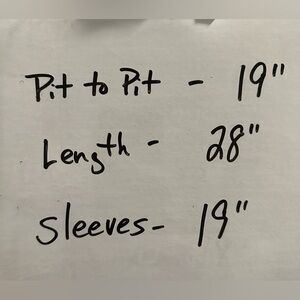 Pit to Pit - 19"
Length - 28"
Sleeves- 19"